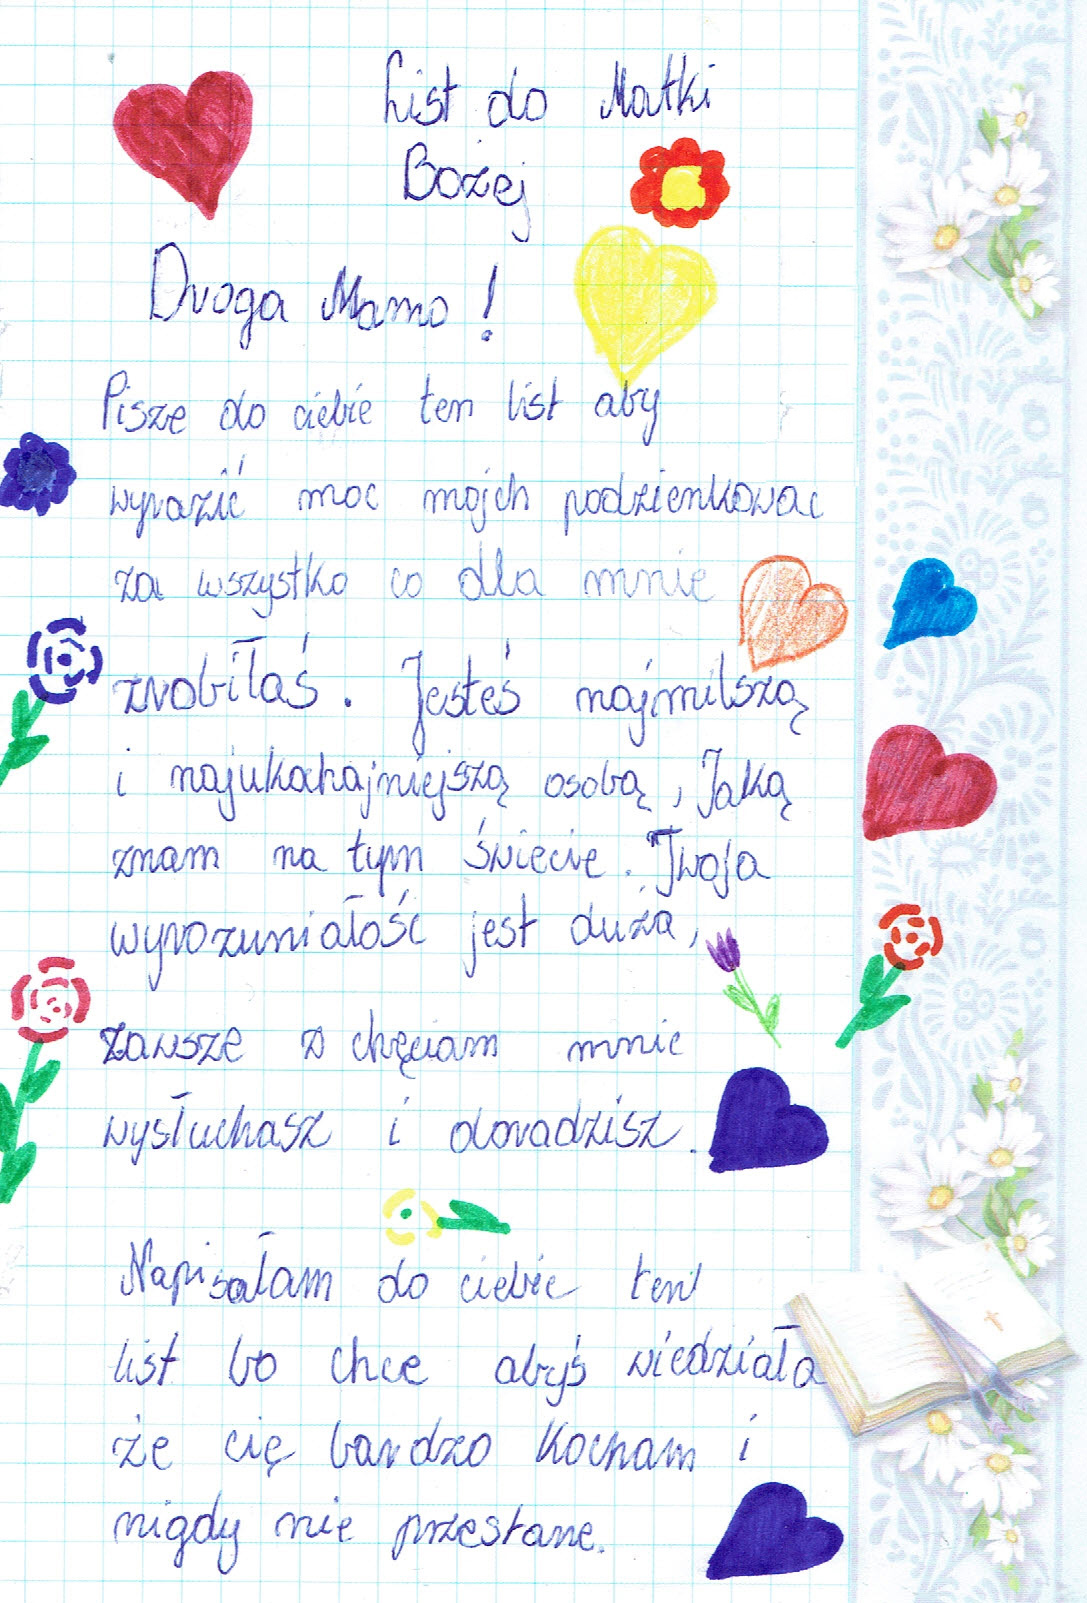 List do Matki
Bożej
Droga Mamo!
Pisze do ciebie ten list aby
wyrazić moc mojch podzienkowac
za wszystko co dla mnie
zrobiłaś. Jesteś najmilszą
i najukahajniejszą osobą, Jaką
znam na tym świecie. Twoja
wyrozumiałość jest duża,
zawsze z chęciam mnie
wysłuchasz i doradzisz.
Napisałam do ciebie ten
list bo chce abyś wiedziała
że cię bardzo kocham i
nigdy nie przestane.